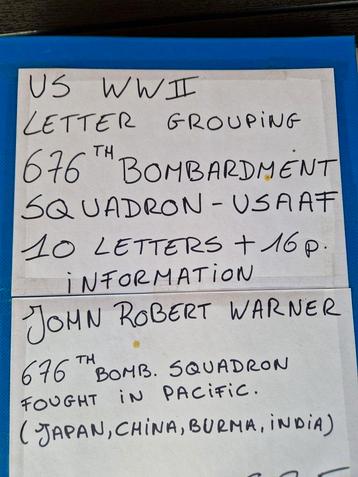 US WWII
LETTER GROUPING
676TH BOMBARDMENT
SQUADRON - USAAF
10 LETTERS + 16 p.
iNFORMATION
JOHN ROBERT WARNER
676TH BOMB. SQUADRON
FOUGHT iN PACiFiC.
(JAPAN, CHiNA, BURMA, iNDiA)